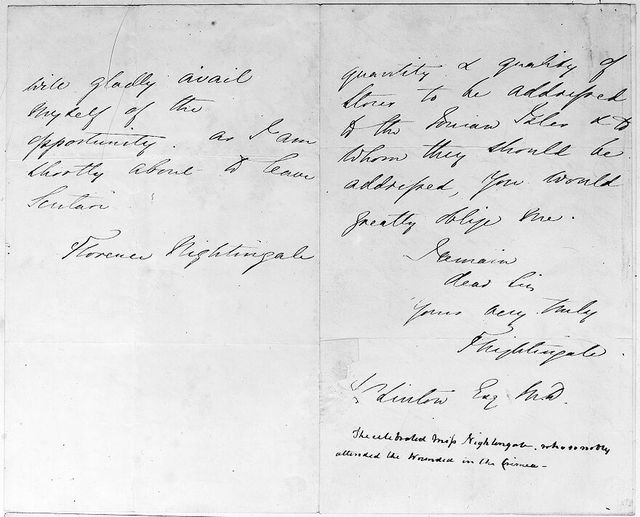 will gladly avail
myself of the
opportunity. as I am
shortly about to leave
Scutari
Florence Nightingale
quantity & quality of
stores to be addressed
to the Ionian Isles & to
whom they should be
addressed, you would
greatly oblige me.
I remain
dear Sir
Yours very truly
F Nightingale
Linton Esq M.D.
The celebrated Miss Nightingale, who so nobly
attended the Wounded in the Crimea -